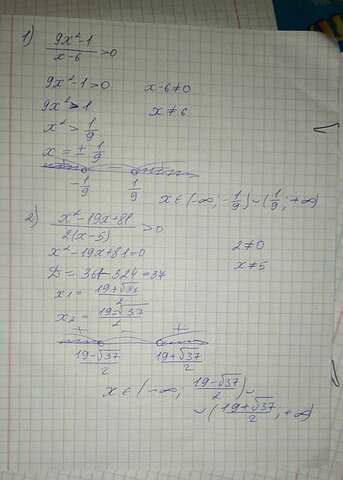 1) 9x²-1 / x-6 >0
9x²-1>0 x-6≠0
9x²>1 x≠6
x²>1/9
x=±1/9
-1/9 1/9
x∈(-∞;-1/9)∪(1/9;+∞)
2) x²-19x+81 / 2(x-5) >0
x²-19x+81=0 2≠0
D=361-324=37 x≠5
x₁=19+√37 / 2
x₂=19-√37 / 2
+ - +
19-√37 / 2 19+√37 / 2
x∈(-∞; 19-√37 / 2)∪
∪(19+√37 / 2; +∞)